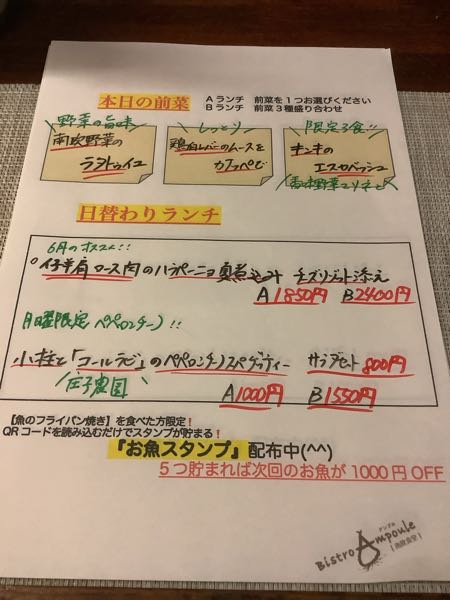 本日の前菜
Aランチ　前菜を1つお選びください
Bランチ　前菜3種盛り合わせ
野菜の旨味
南欧野菜の
ラタトゥイユ
しっとり
鶏白レバーのムースを
カナッペで
限定3食!!
キンキの
エスカベッシュ
香味野菜マリネと
日替わりランチ
6月のオススメ!!
。仔羊肩ロース肉のハラペーニョ煮込み チーズリゾット添え
A 1850円 B 2400円
月曜限定ペペロンチーノ!!
小柱と「コールラビ」のペペロンチーノスパゲッティー サラダセット 800円
庄子農園
A 1000円 B 1550円
【魚のフライパン焼き】を食べた方限定！
QRコードを読み込むだけでスタンプが貯まる！
『お魚スタンプ』配布中(^^)
5つ貯まれば次回のお魚が1000円OFF
アンプル
Bistro Ampoule
［南欧食堂］